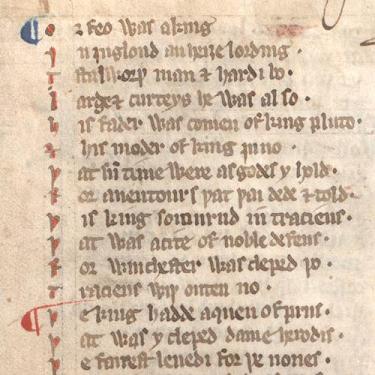 Orfeo was a king
In Inglond an heiȝe lording
A stalworþ man & hardi bo
Large & curteys he was al so
His fader was comen of king Pluto
& his moder of king Juno
Þat sum time were as godes yhold
For auentours þat þai dede & told
Þis king soiournd in Traciens
Þat was a cite of noble defens
For Winchester was cleped þo
Traciens wiþ outen no
Þe king hadde a quen of priis
Þat was ycleped Dame Herodis
Þe fairest leuedi for þe nones